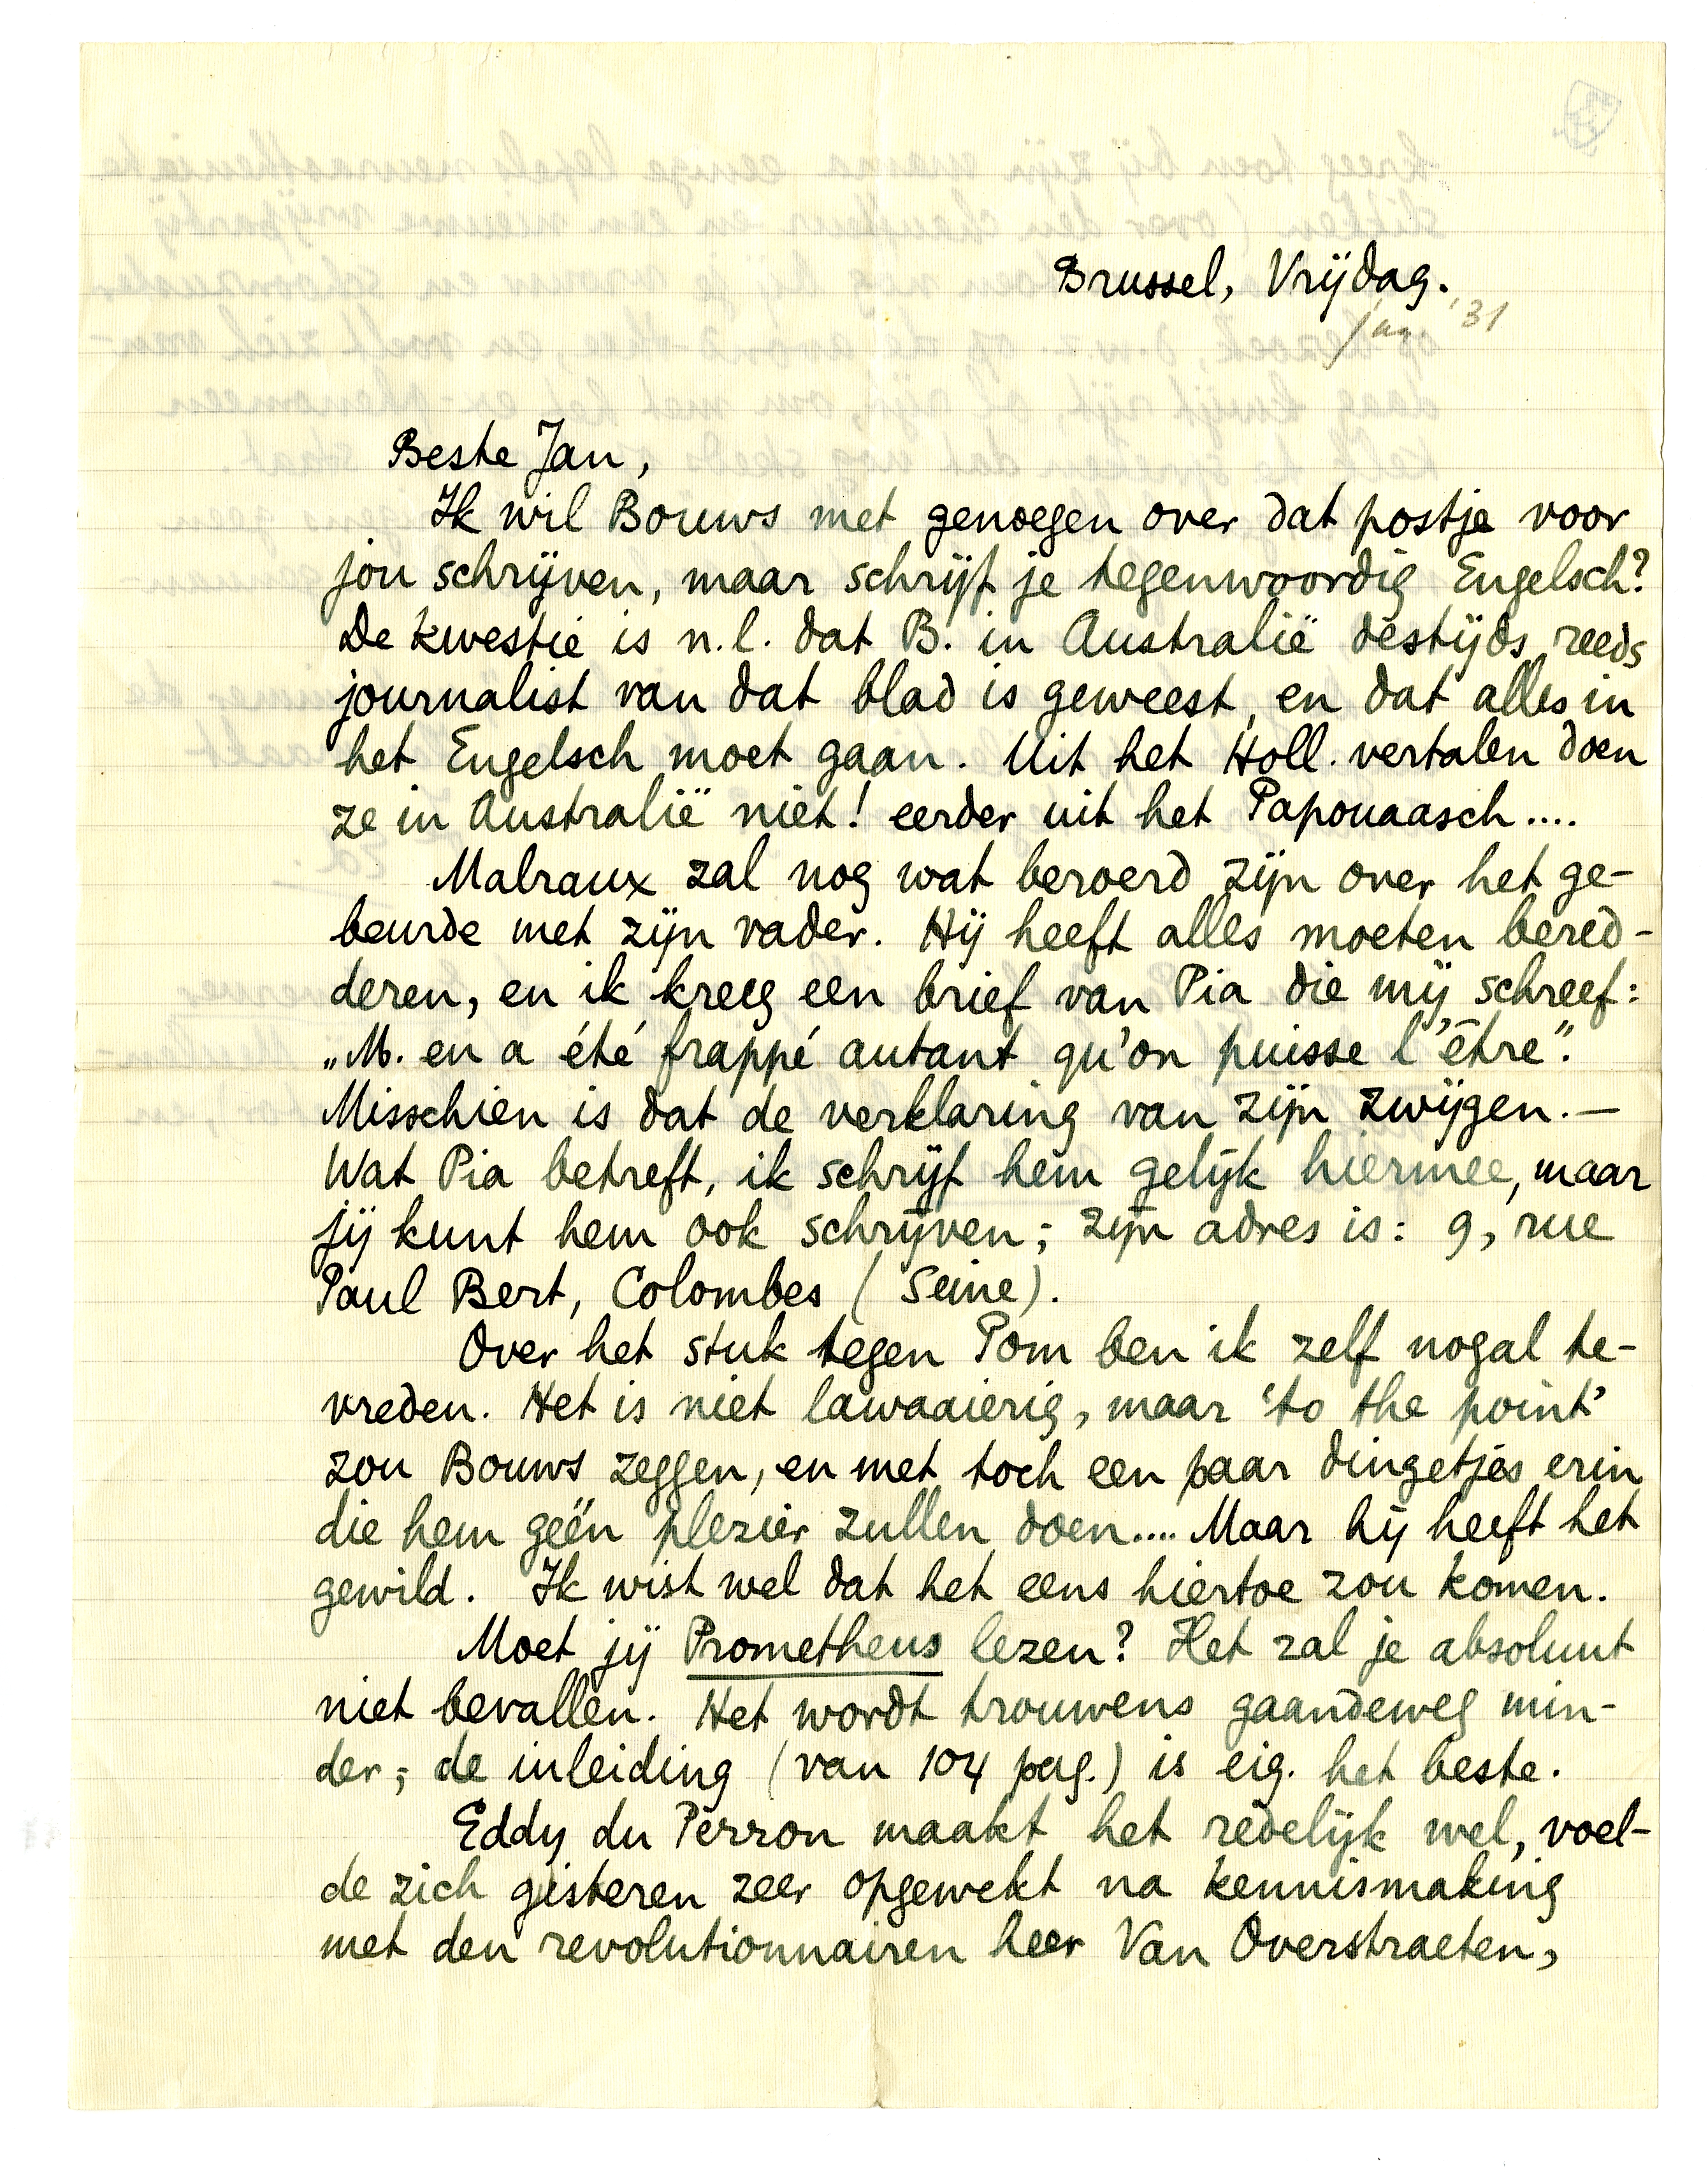 Brussel, Vrijdag.
jan. '31
Beste Jan,
Ik wil Bouws met genoegen over dat postje voor
jou schrijven, maar schrijf je tegenwoordig Engelsch?
De kwestie is n.l. dat B. in Australië destijds reeds
journalist van dat blad is geweest, en dat alles in
het Engelsch moet gaan. Uit het Holl. vertalen doen
ze in Australië niet! eerder uit het Papouaasch....
Malraux zal nog wat beroerd zijn over het ge-
beurde met zijn vader. Hij heeft alles moeten bered-
deren, en ik kreeg een brief van Pia die mij schreef:
„M. en a été frappé autant qu'on puisse l'être”.
Misschien is dat de verklaring van zijn zwijgen.—
Wat Pia betreft, ik schrijf hem gelijk hiermee, maar
jij kunt hem ook schrijven; zijn adres is: 9, rue
Paul Bert, Colombes (Seine).
Over het stuk tegen Pom ben ik zelf nogal te-
vreden. Het is niet lawaaierig, maar 'to the point'
zou Bouws zeggen, en met toch een paar dingetjes erin
die hem géén plezier zullen doen.... Maar hij heeft het
gewild. Ik wist wel dat het eens hiertoe zou komen.
Moet jij Prometheus lezen? Het zal je absoluut
niet bevallen. Het wordt trouwens gaandeweg min-
der; de inleiding (van 104 pag.) is eig. het beste.
Eddy du Perron maakt het redelijk wel, voel-
de zich gisteren zeer opgewekt na kennismaking
met den revolutionnairen heer Van Overstraeten,